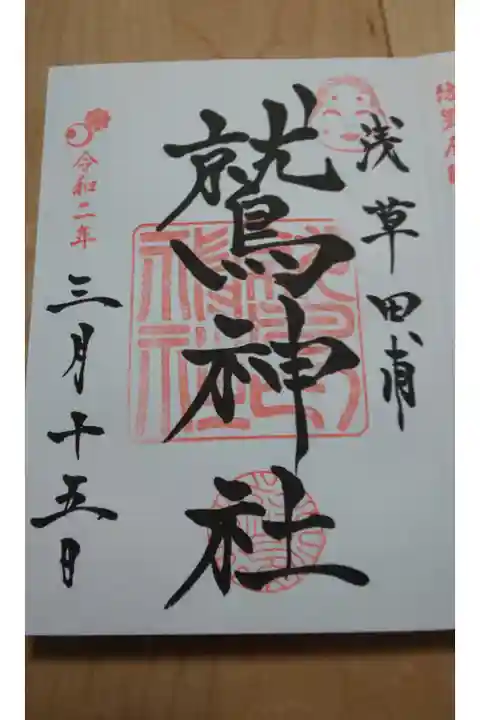 浅草田甫
鷲神社
令和二年
三月十五日